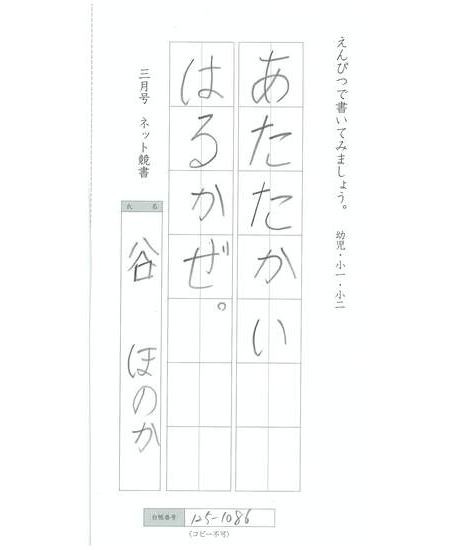 えんぴつで書いてみましょう。 幼児・小一・小二
あたたかい
はるかぜ。
三月号 ネット競書
氏名
谷 ほのか
台帳番号 125-1086
(コピー不可)